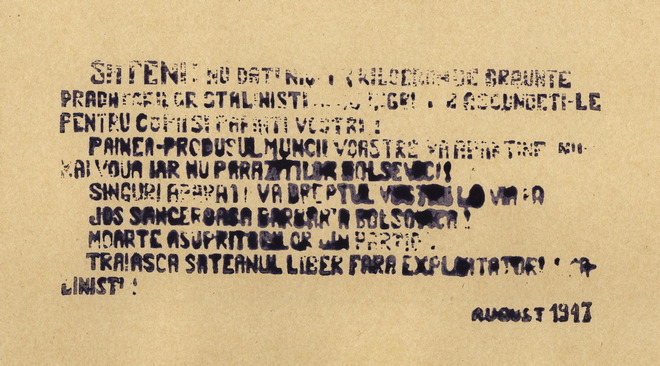 SATENI! NU DATI KILOGRAM DE GRAUNTE
PRADATORILOR STALINISTI ASCUNDETI-LE
PENTRU COPII SI PARINTI VOSTRI!
PAINEA-PRODUSUL MUNCII VOASTRE VA APARTINE NU-
MAI VOUA IAR NU PARAZITILOR BOLSEVICI!
SINGURI APARATI VA DREPTUL VOSTRU LA VIATA
JOS SANGEROASA BARBARIA BOLSOVICA!
MOARTE ASUPRITORILOR DIN PARTID!
TRAIASCA SATEANUL LIBER FARA EXPLOATATORI STA-
LINISTI!
AUGUST 1947